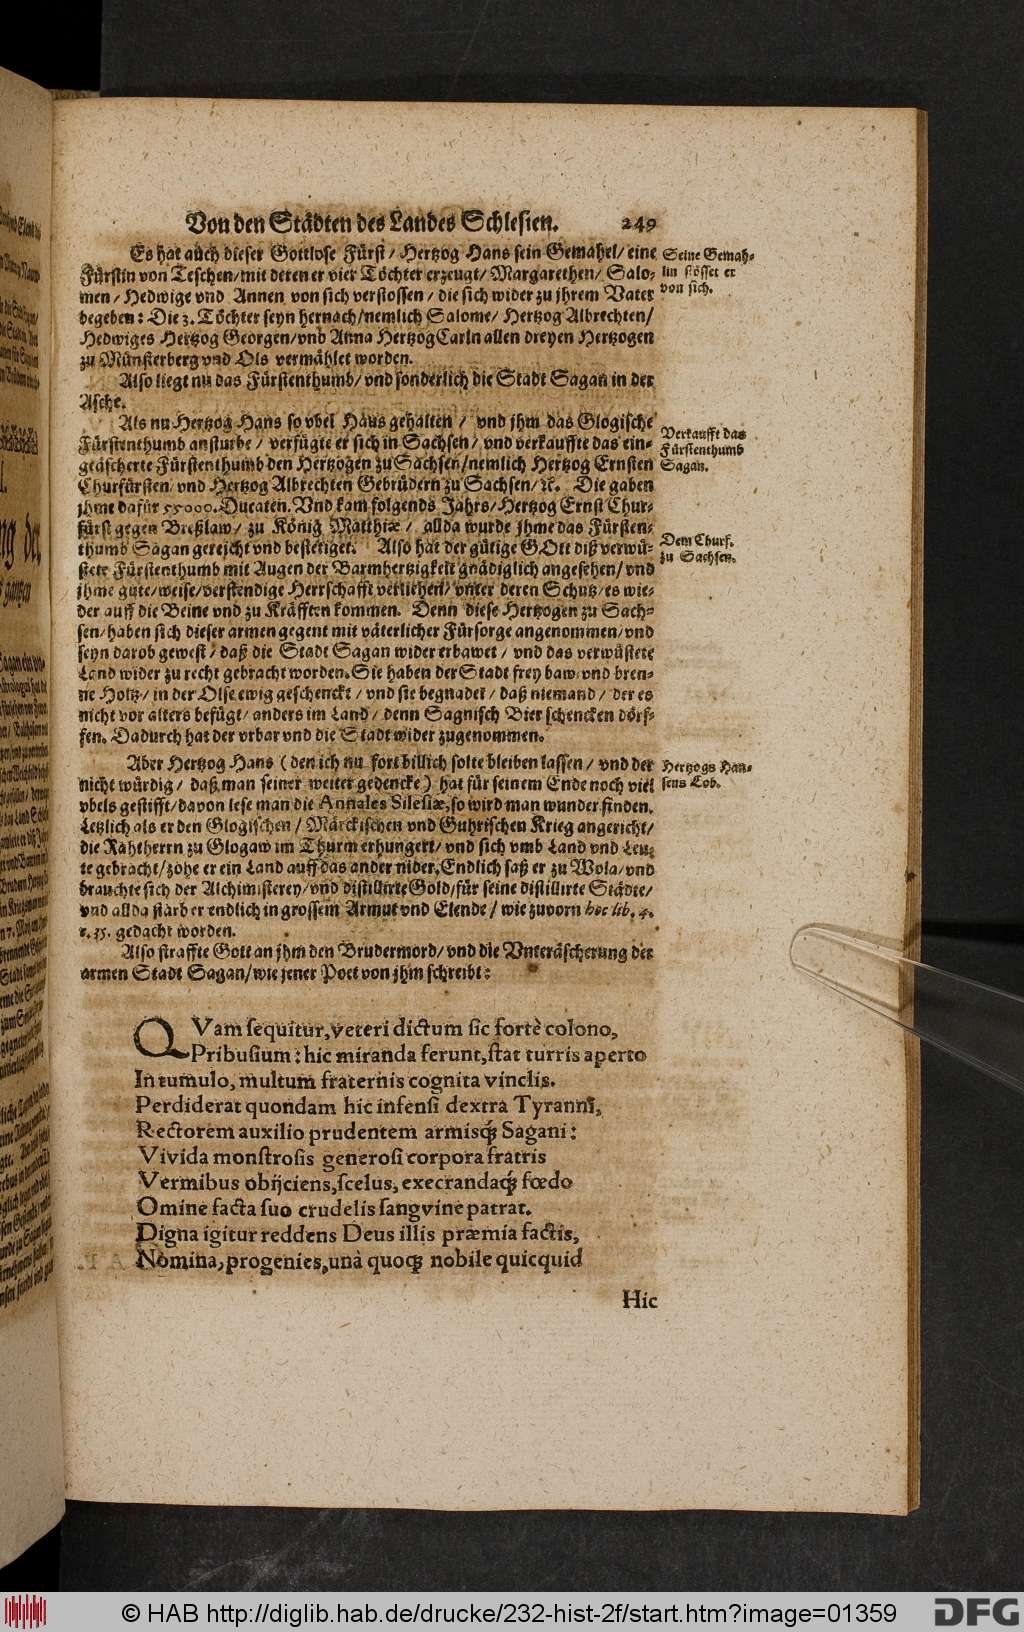 Von den Städten des Landes Schlesien. 249
Es hat auch dieser Gottlose Fürst / Hertzog Hans sein Gemahel / eine
Fürstin von Teschen / mit deren er vier Töchter erzeugt / Margarethen / Salo-
men / Hedwige vnd Annen von sich verstossen / die sich wider zu jhrem Vater
begeben: Die 3. Töchter seyn hernach / nemlich Salome / Hertzog Albrechten /
Hedwiges Hertzog Georgen / vnd Anna Hertzog Carln allen dreyen Hertzogen
zu Münsterberg vnd Ols vermählet worden.
Seine Gemah-
lin stösset er
von sich.
Also liegt nu das Fürstenthumb / vnd sonderlich die Stadt Sagan in der
Asche.
Als nu Hertzog Hans so vbel Haus gehalten / vnd jhm das Glogische
Fürstenthumb ansturbe / verfügte er sich in Sachsen / vnd verkauffte das ein-
geäscherte Fürstenthumb den Hertzogen zu Sachsen / nemlich Hertzog Ernsten
Churfürsten / vnd Hertzog Albrechten Gebrüdern zu Sachsen / ꝛc. Die gaben
jhme dafür 55000. Ducaten. Vnd kam folgends Jahrs / Hertzog Ernst Chur-
fürst gegen Breßlaw / zu König Matthiæ / allda wurde jhme das Fürsten-
thumb Sagan gereicht vnd bestetiget. Also hat der gütige GOtt diß verwü-
stete Fürstenthumb mit Augen der Barmhertzigkeit gnädiglich angesehen / vnd
jhme gute / weise / verstendige Herrschafft verliehen / vnter deren Schutz / es wie-
der auff die Beine vnd zu Kräfften kommen. Denn diese Hertzogen zu Sach-
sen / haben sich dieser armen gegent mit väterlicher Fürsorge angenommen / vnd
seyn darob gewest / daß die Stadt Sagan wider erbawet / vnd das verwüstete
Land wider zu recht gebracht worden. Sie haben der Stadt frey baw vnd bren-
ne Holtz / in der Olse ewig geschenckt / vnd sie begnadet / daß niemand / der es
nicht vor alters befügt / anders im Land / denn Sagnisch Bier schencken dörf-
fen. Dadurch hat der vrbar vnd die Stadt wider zugenommen.
Verkaufft das
Fürstenthumb
Sagan.
Dem Churf.
zu Sachsen.
Aber Hertzog Hans (den ich nu fort billich solte bleiben lassen / vnd der
nicht würdig / daß man seiner weiter gedencke) hat für seinem Ende noch viel
vbels gestifft / davon lese man die Annales Silesiæ, so wird man wunder finden.
Letzlich als er den Glogischen / Märckischen vnd Guhrischen Krieg angericht /
die Rähtherrn zu Glogaw im Thurm erhungert / vnd sich vmb Land vnd Leu-
te gebracht / zohe er ein Land auff das ander nider. Endlich saß er zu Wola / vnd
brauchte sich der Alchimisterey / vnd distillirte Gold / für seine distillirte Städte /
vnd allda starb er endlich in grossem Armut vnd Elende / wie zuvorn hoc lib. 4.
c. 35. gedacht worden.
Hertzogs Han-
sens Lob.
Also straffte Gott an jhm den Brudermord / vnd die Vnteräscherung der
armen Stadt Sagan / wie jener Poet von jhm schreibt:
QVam sequitur, veteri dictum sic fortè colono,
Pribusium: hic miranda ferunt, stat turris aperto
In tumulo, multum fraternis cognita vinclis.
Perdiderat quondam hic infensi dextra Tyranni,
Rectorem auxilio prudentem armisq́; Sagani:
Vivida monstrosis generosi corpora fratris
Vermibus obijciens, scelus, execrandaq́; fœdo
Omine facta suo crudelis sangvine patrat.
Digna igitur reddens Deus illis præmia factis,
Nomina, progenies, unà quoq; nobile quicquid
Hic
© HAB http://diglib.hab.de/drucke/232-hist-2f/start.htm?image=01359 DFG